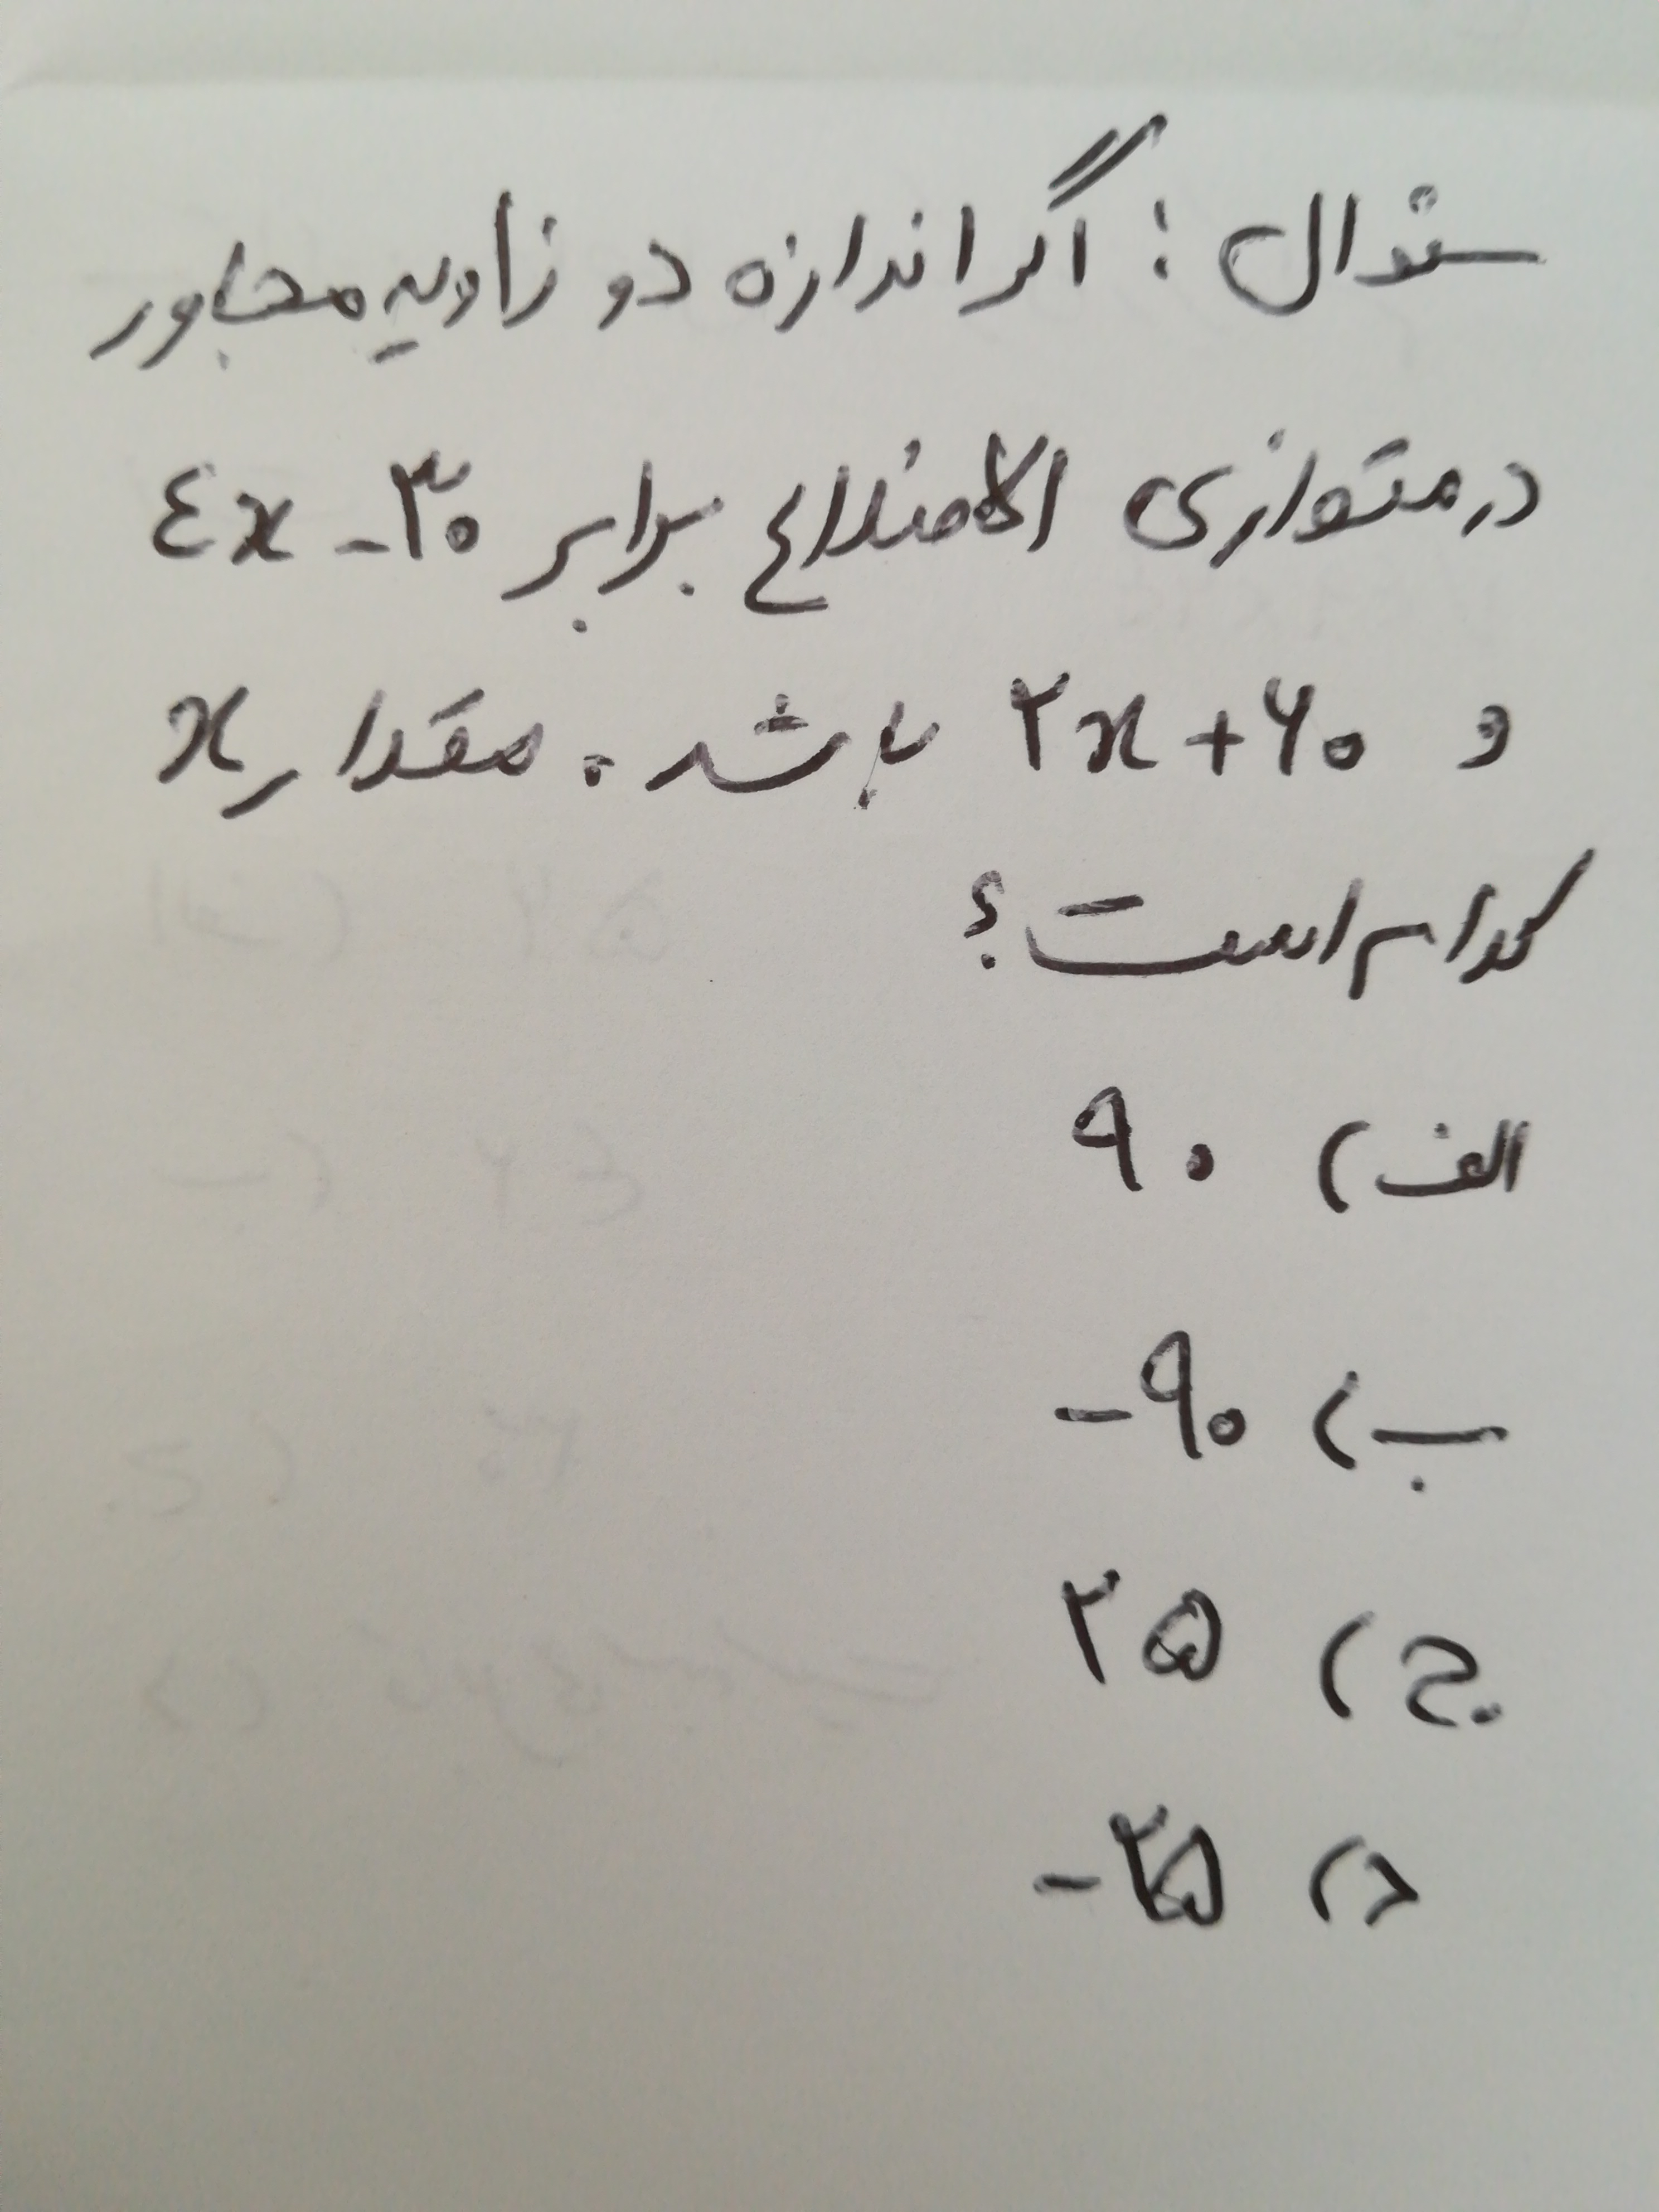 سئوال : اگر اندازه دو زاویه مجاور
در متوازی الاضلاع برابر ٤x - ۳۰
و ۲x + ۶۰ باشد، مقدار x
کدام است؟
الف) ۹۰
ب) -۹۰
ج) ۲۵
د) -۲۵